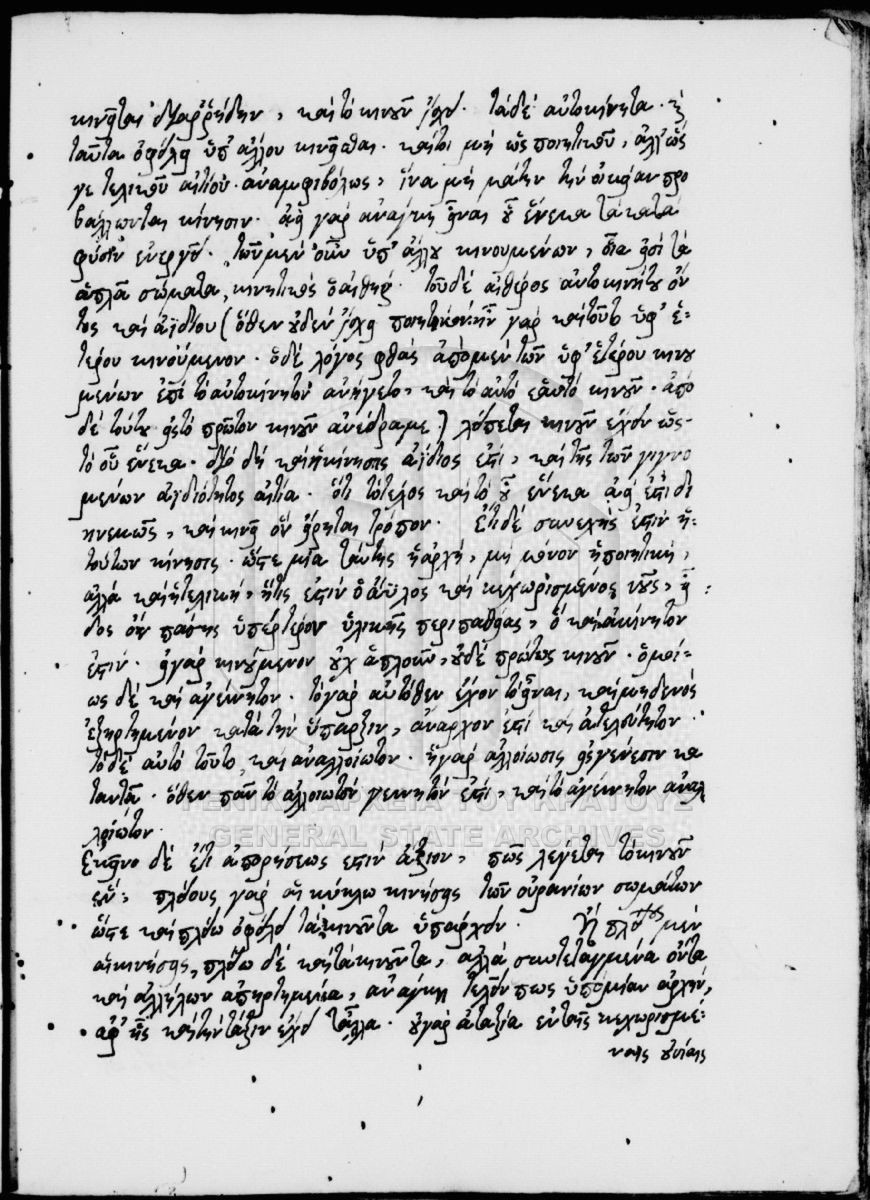 κινεῖται διαρρήδην, καὶ τὸ κινοῦν ἔχει. τὰ δὲ αὐτοκίνητα. καὶ
ταῦτα ὀφείλει ὑπ' ἄλλου κινεῖσθαι. καίτοι μὴ ὡς ποιητικοῦ, ἀλλ' ὥς
γε τελικοῦ αἰτίου. ἀναμφιβόλως, ἵνα μὴ μάτην τὴν οἰκείαν προ
βάλλωνται κίνησιν. ἀεὶ γὰρ ἀνάγκη εἶναι οὗ ἕνεκα τὰ κατὰ
φύσιν ἐνεργεῖ. τῶν μὲν οὖν ὑπ' ἄλλου κινουμένων, οἷά εἰσι τὰ
ἁπλᾶ σώματα, κινητικὸς ὁ αἰθήρ. τοῦ δὲ αἰθέρος αὐτοκινήτου ὄν
τος καὶ ἀϊδίου (ὅθεν οὐδὲν ἔχει ποιητικόν. ἦν γὰρ καὶ τοῦτο ὑφ' ἑ-
τέρου κινούμενον. ὁ δὲ λόγος φθὰς ἀπὸ μὲν τῶν ὑφ' ἑτέρου κινου
μένων ἐπὶ τὸ αὐτοκίνητον ἀνήγετο, καὶ τὸ αὐτὸ ἑαυτὸ κινοῦν. ἀπὸ
δὲ τούτου εἰς τὸ πρῶτον κινοῦν ἀνέδραμε.) λείπεται κινοῦν ἔχειν ὡς
τὸ οὗ ἕνεκα. διὸ δὴ καὶ ἡ κίνησις ἀΐδιος ἐστὶ, καὶ τῆς τῶν γιγνο
μένων ἀϊδιότητος αἰτία. ὅτι τὸ τέλος καὶ τὸ οὗ ἕνεκα ἀεὶ ἐστὶ δι
ηνεκῶς, καὶ κινεῖ ὃν εἴρηται τρόπον. Ἔτι δὲ συνεχής ἐστιν ἡ
τούτων κίνησις. ὥστε μία ταύτης ἡ ἀρχή, μὴ μόνον ἡ ποιητική,
ἀλλὰ καὶ ἡ τελική, ἥτις ἐστὶν ὁ ἄϋλος καὶ κεχωρισμένος νοῦς, εἶ
δος ὂν πάσης ὑπέρτερον ὑλικῆς περιπαθείας, ὃ καὶ ἀκίνητον
ἐστιν. εἰ γὰρ κινούμενον οὐχ ἁπλοῦν, οὐδὲ πρώτως κινοῦν. ὁμοί-
ως δὲ καὶ ἀγέννητον. τὸ γὰρ αὐτόθεν ἔχον τὸ εἶναι, καὶ μηδενὸς
ἐξηρτημένον κατὰ τὴν ὕπαρξιν, ἄναρχον ἐστὶ καὶ ἀτελεύτητον.
τὸ δὲ αὐτὸ τοῦτο, καὶ ἀναλλοίωτον. ἡ γὰρ ἀλλοίωσις εἰς γένεσιν κα
ταντᾷ. ὅθεν πᾶν τὸ ἀλλοιωτὸν γεννητὸν ἐστὶ, καὶ τὸ ἀγέννητον ἀναλ
λοίωτον.
Ἐκεῖνο δὲ ἔτι ἀπορήσεως ἐστὶν ἄξιον, πῶς λέγεται τὸ κινοῦν
ἕν. πλείους γὰρ αἱ κύκλῳ κινήσεις τῶν οὐρανίων σωμάτων
ὥστε καὶ πλείω ὀφείλει τὰ κινοῦντα ὑπάρχειν. Ἢ πλείους μὲν
αἱ κινήσεις, πλείω δὲ καὶ τὰ κινοῦντα, ἀλλὰ συντεταγμένα ὄντα
καὶ ἀλλήλων ἀπηρτημένα, ἀνάγκη τελεῖν πως ὑπὸ μίαν ἀρχήν,
ἀφ' ἧς καὶ τὴν τάξιν ἔχει τἆλλα. οὐ γὰρ ἀταξία ἐν ταῖς κεχωρισμέ-
ναις οὐσίαις
ΓΕΝΙΚΑ ΑΡΧΕΙΑ ΤΟΥ ΚΡΑΤΟΥΣ
GENERAL STATE ARCHIVES